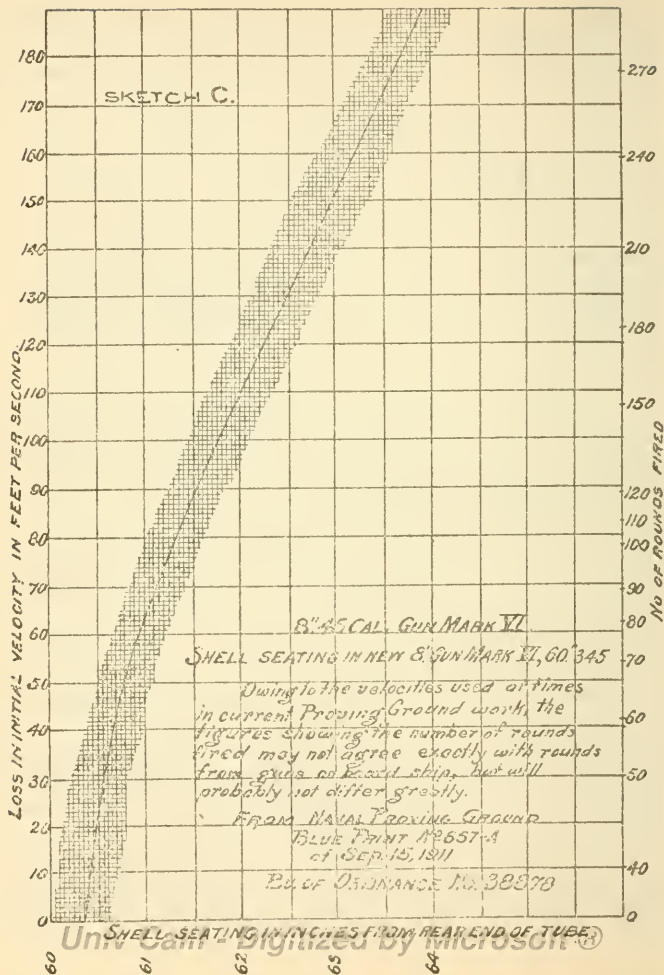 180
170
160
150
140
130
120
110
100
90
80
70
60
50
40
30
20
10
0
LOSS IN INITIAL VELOCITY IN FEET PER SECOND.
SKETCH C.
270
240
210
180
150
120
110
100
90
80
70
60
50
40
0
NO OF ROUNDS FIRED
8" 45 CAL. GUN MARK VI
SHELL SEATING IN NEW 8" GUN MARK VI, 60."345
Owing to the velocities used at times
in current Proving Ground work, the
figures showing the number of rounds
fired may not agree exactly with rounds
from guns on board ship, but will
probably not differ greatly.
FROM NAVAL PROVING GROUND
BLUE PRINT No 657-A
of SEP. 15, 1911
BU. OF ORDNANCE No. 38878
SHELL SEATING IN INCHES FROM REAR END OF TUBE.
60 61 62 63 64
Univ Calif - Digitized by Microsoft ®